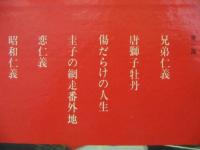 兄弟仁義
唐獅子牡丹
傷だらけの人生
圭子の網走番外地
悲仁義
昭和仁義